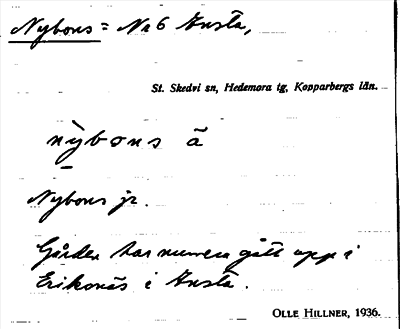 Nybons = No 6 Ansta,
St. Skedvi sn, Hedemora tg, Kopparbergs län.
nỳbons ä
Nybons jr.
Gården har numera gått upp i
Eriksnäs i Ansta.
OLLE HILLNER, 1936.